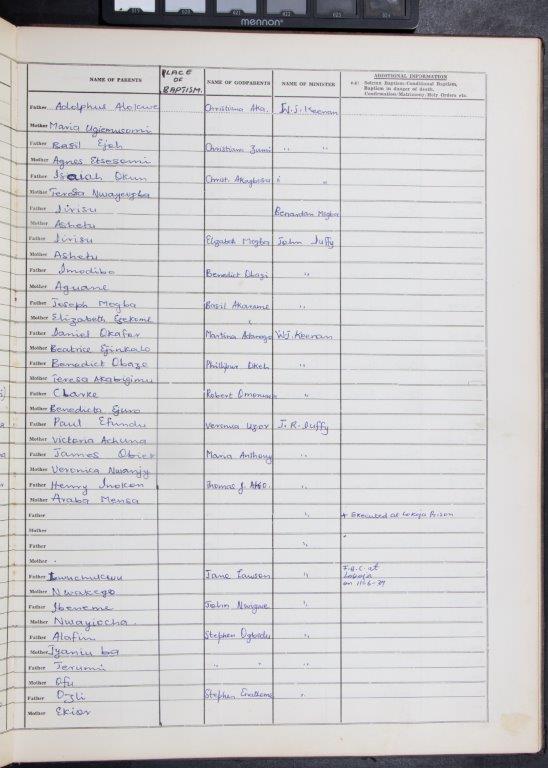 mennon
NAME OF PARENTS PLACE OF BAPTISM. NAME OF GODPARENTS NAME OF MINISTER ADDITIONAL INFORMATION
e.g: Solemn Baptism: Conditional Baptism,
Baptism in danger of death,
Confirmation/Matrimony/Holy Orders etc.
Father Adolphus Christiana Aka. W.J. Keenan
Mother Maria
Father Basil Ejeh Christiana Zumi " "
Mother Agnes Etsesomi
Father Isaiah Okun Christ. "
Mother Teresa Nwayeugba
Father Jirisu Benardan Mogba
Mother Ashetu
Father Jirisu Elizabeth Mogba John Duffy
Mother Ashetu
Father Imodibo Benedict Obazi "
Mother Aguane
Father Joseph Mogba Basil Akarame "
Mother Elizabeth
Father Daniel Okafor Martina W.J. Keenan
Mother Beatrice Ejinkalo
Father Benedict Obaze Phillipus Okeh "
Mother Teresa Akabrigimu
Father Clarke Robert "
Mother Benedicta Ejuro
Father Paul Efundu Veronica Uzor J.R. Duffy
Mother Victoria Achuna
Father James Obier Maria Anthony "
Mother Veronica Nwanjy
Father Henry Inokon Thomas J. "
Mother Araba Mensa
Father " + Executed at Lokoja Prison
Mother
Father "
Mother
Father Jane Lawson " F.B.C. at
Lokoja
on 11-6-39
Mother Nwakego
Father Ibeneme John Nwigwe "
Mother Nwayiocha.
Father Alafin Stephen Ogbodu "
Mother Iyaniu ba
Father Jerumi " " "
Mother Ofu
Father Ozli Stephen "
Mother Ekior